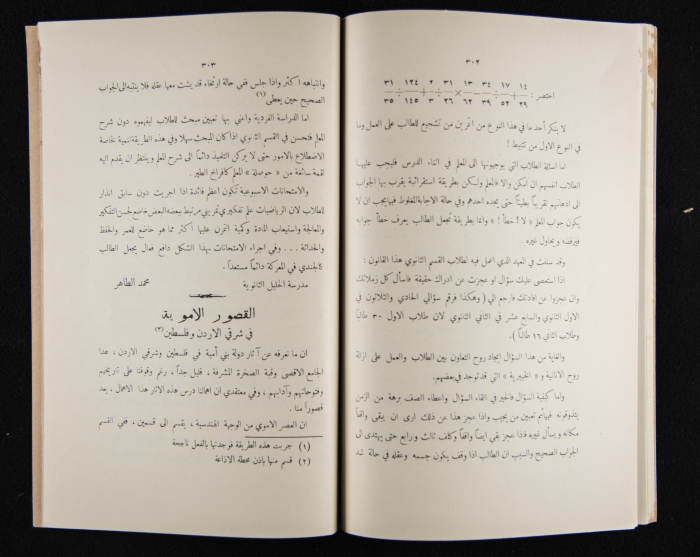 ٣٠٢
اختصر : ١٤/٢٩ ÷ ١٧/٥٢ ÷ ٣٤/٣٩ − ١٣/١٢ × ٣١/٢٦ ÷ ٢/٣ + ١٢٤/١٤٥ ÷ ٣١/٣٥
لا ينكر أحد ما في هذا النوع من التمرين من تشجيع للطالب على العمل وما
في النوع الاول من تثبيط !
اما اسئلة الطلاب التي يوجهونها الى المعلم في اثناء الدرس فليجب عليها
الطلاب انفسهم ان امكن والا فالمعلم ولكن بطريقة استقرائية يقرب بها الجواب
الى اذهانهم تقريباً بطيئاً حتى يجده احدهم وفي حالة الاجابة المغلوط فيها يجب ان لا
يكون جواب المعلم « لا ! خطأ ! » وانما بطريقة تجعل الطالب يعرف خطأ جوابه
فيرفضه و يحاول غيره .
وقد سننت في المعهد الذي اعمل فيه لطلاب القسم الثانوي هذا القانون :
اذا استعصى عليك سؤال او عجزت عن ادراك حقيقة فاسأل كل زملائك
وان عجزوا عن افادتك فارجع الي ( وهكذا فرقم سؤالي الحادي والثلاثون في
الاول الثانوي والسابع عشر في الثاني الثانوي لان طلاب الاول ٣٠ طالباً
وطلاب الثاني ١٦ طالباً ) .
والغاية من هذا السؤال ايجاد روح التعاون بين الطلاب والعمل على ازالة
روح الانانية و « الخيبرية » التي قد توجد في بعضهم .
واما كيفية السؤال فالخير في القاء السؤال واعطاء الصف برهة من الزمن
يتذوقونه فيها ثم تعيين من يجيب واذا عجز هذا عن ذلك ارى ان يبقى واقفاً
مكانه و يسأل غيره فاذا عجز بقي ايضاً واقفاً وكلف ثالث و رابع حتى يهتدى الى
الجواب الصحيح والسبب ان الطالب اذا وقف يكون جسمه وعقله في حالة شد
٣٠٣
وانتباهه اكثر واذا جلس ففي حالة ارتخاء قد يشت معها عقله فلا ينتبه الى الجواب
الصحيح حين يعطى (١)
اما الدراسة الفردية واعني بها تعيين مبحث للطلاب ليفهموه دون شرح
المعلم فتحسن في القسم الثانوي اذا كان المبحث سهلا وفي هذه الطريقة تنمية خاصة
الاضطلاع بالامور حتى لا يركن التلميذ دائماً الى شرح المعلم و ينتظر ان يقدم اليه
لقمة سائغة من « حوصلة » المعلم كافراخ الطير .
والامتحانات الاسبوعية تكون اعظم فائدة اذا اجريت دون سابق انذار
للطلاب لان الرياضيات علم تفكيري تمريني مرتبط بعضه بالبعض خاضع لحسن التفكير
والمعالجة واستيعاب المادة وكمية التمرن عليها اكثر مما هو خاضع للعمر والحفظ
والحداثة . . . وفي اجراء الامتحانات بهذا الشكل دافع فعال يجعل الطالب
كالجندي في المعركة دائماً مستعداً .
مدرسة الخليل الثانوية محمد الطاهر
القصور الاموية
في شرقي الاردن وفلسطين (٢)
ان ما نعرفه عن آثار دولة بني أمية في فلسطين وشرقي الاردن ، عدا
الجامع الاقصى وقبة الصخرة المشرفة ، قليل جداً ، رغم وقوفنا على تاريخهم
وفتوحاتهم وآدابهم ، وفي معتقدي ان اهمالنا درس هذه الآثار هذا الاهمال ، يعد
قصوراً منا .
ان العصر الاموي من الوجهة الهندسية ، يقسم الى قسمين ، ففي القسم
(١) جربت هذه الطريقة فوجدتها بالفعل ناجحة
(٢) قسم منها باذن محطة الاذاعة